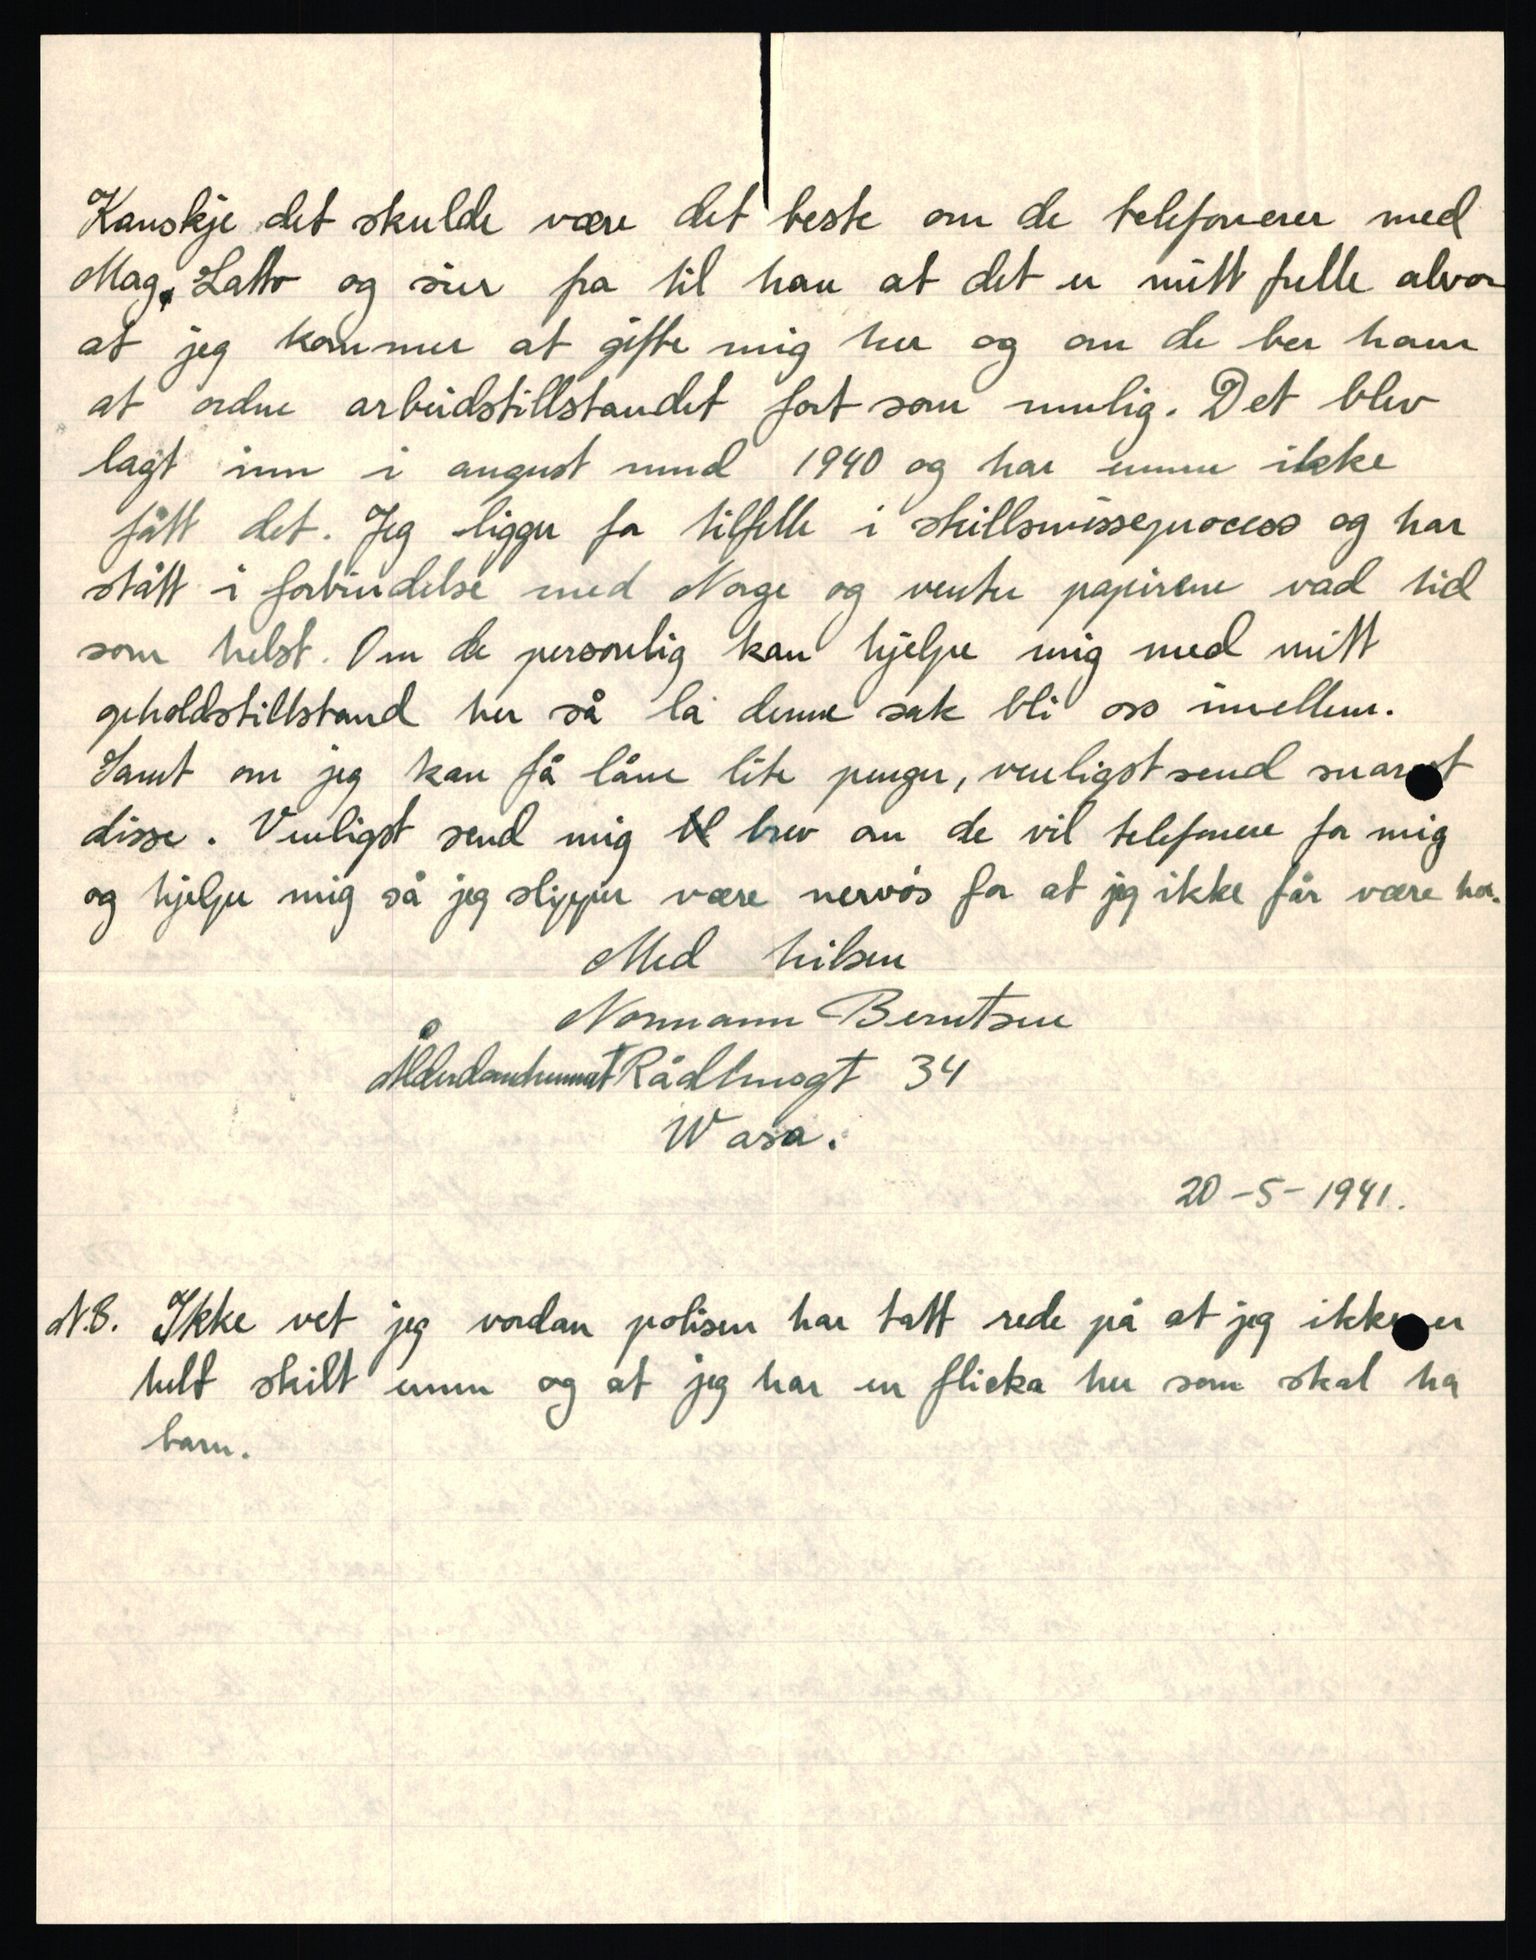 Kanskje det skulde være det beste om de telefonerer med
Mag. Latto og sier fra til han at det er mitt fulle alvor
at jeg kommer at gifte mig her og om de ber ham
at ordne arbeidstillstandet fort som mulig. Det blev
lagt inn i august mnd 1940 og har ennu ikke
fått det. Jeg ligger for tilfelle i skillsmisseprocess og har
stått i forbindelse med Norge og venter papirene vad tid
som helst. Om de personlig kan hjelpe mig med mitt
opholdstillstand her så la denne sak bli oss imellem.
Samt om jeg kan få låne lite penger, venligst send snarest
disse. Venligst send mig brev om de vil telefonere for mig
og hjelpe mig så jeg slipper være nervös for at jeg ikke får være her.
Med hilsen
Normann Berntsen
Ålderdomhemmet Rådhusgt 34
Wasa.
20-5-1941.
N.B. Ikke vet jeg vordan polisen har tatt rede på at jeg ikke er
helt skilt ennu og at jeg har en flicka her som skal ha
barn.